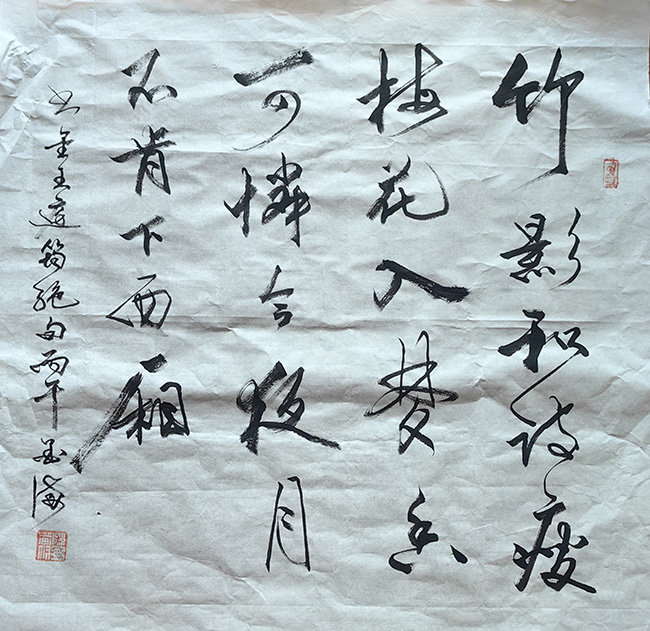 竹影和诗瘦
梅花入梦香
可怜今夜月
不肯下西厢
书金王庭筠绝句丙午墨海